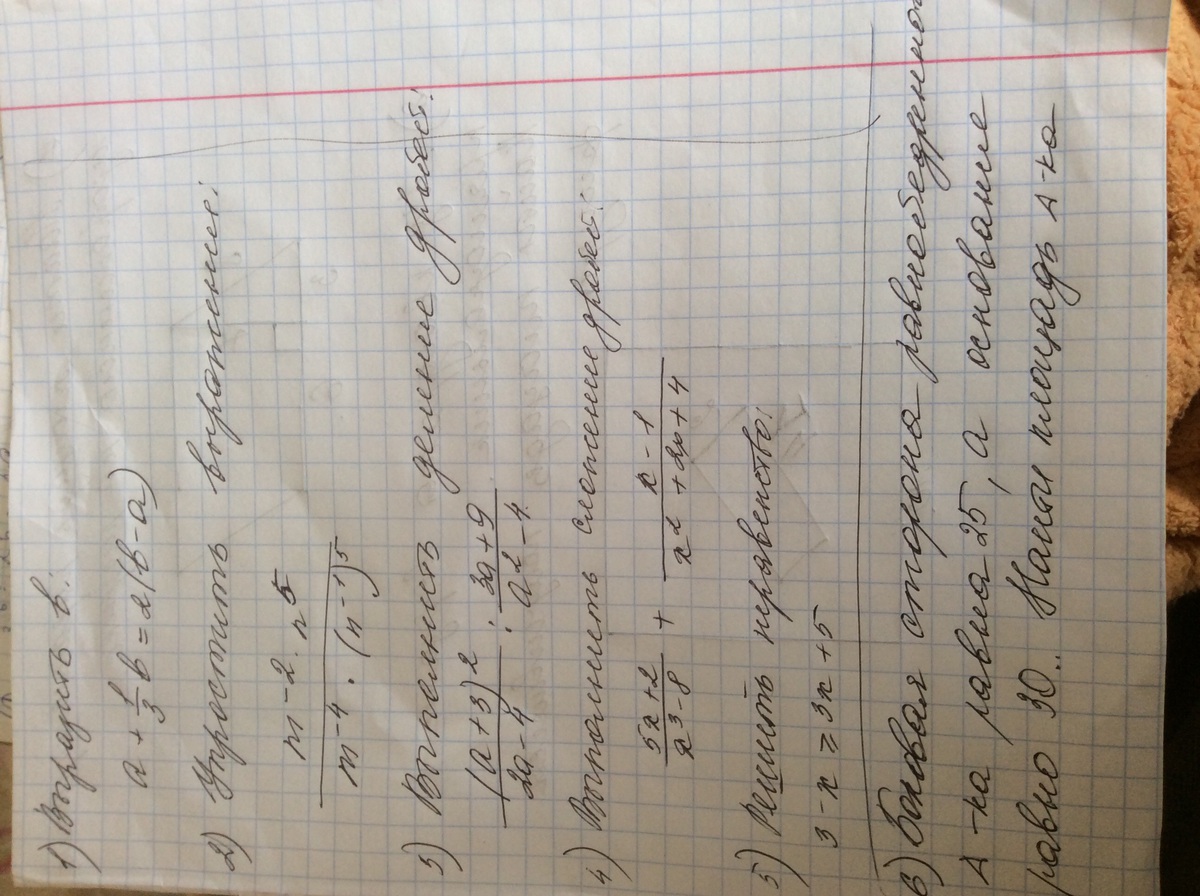 1) Выразить b:
a + 1/3 b = 2(b-a)
2) Упростить выражение:
m^-2 · n^5 / m^-4 · (n^-1)^5
3) Выполнить деление дробей:
(a+3)^2 / 2a-4 : 3a+9 / a^2-4
4) Выполнить сложение дробей:
5x+2 / x^3-8 + x-1 / x^2+2x+4
5) Решить неравенство:
3-x ≥ 3x+5
6) Боковая сторона равнобедренно
∆-ка равна 25, а основание
равно 30.. Найти площадь ∆-ка